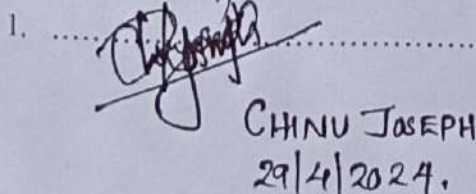 1. ..........................................
CHINU JOSEPH
29/4/2024.